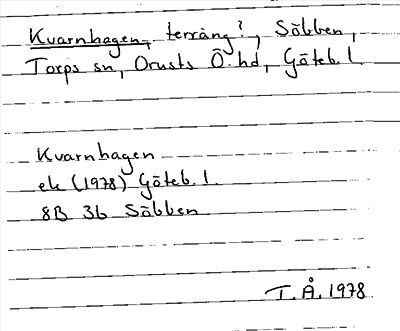 Kvarnhagen, terräng?, Säbben,
Torps sn, Orusts Ö. hd, Göteb. l.
Kvarnhagen
ek (1978) Göteb. l.
8B 3b Säbben
T. Å. 1978